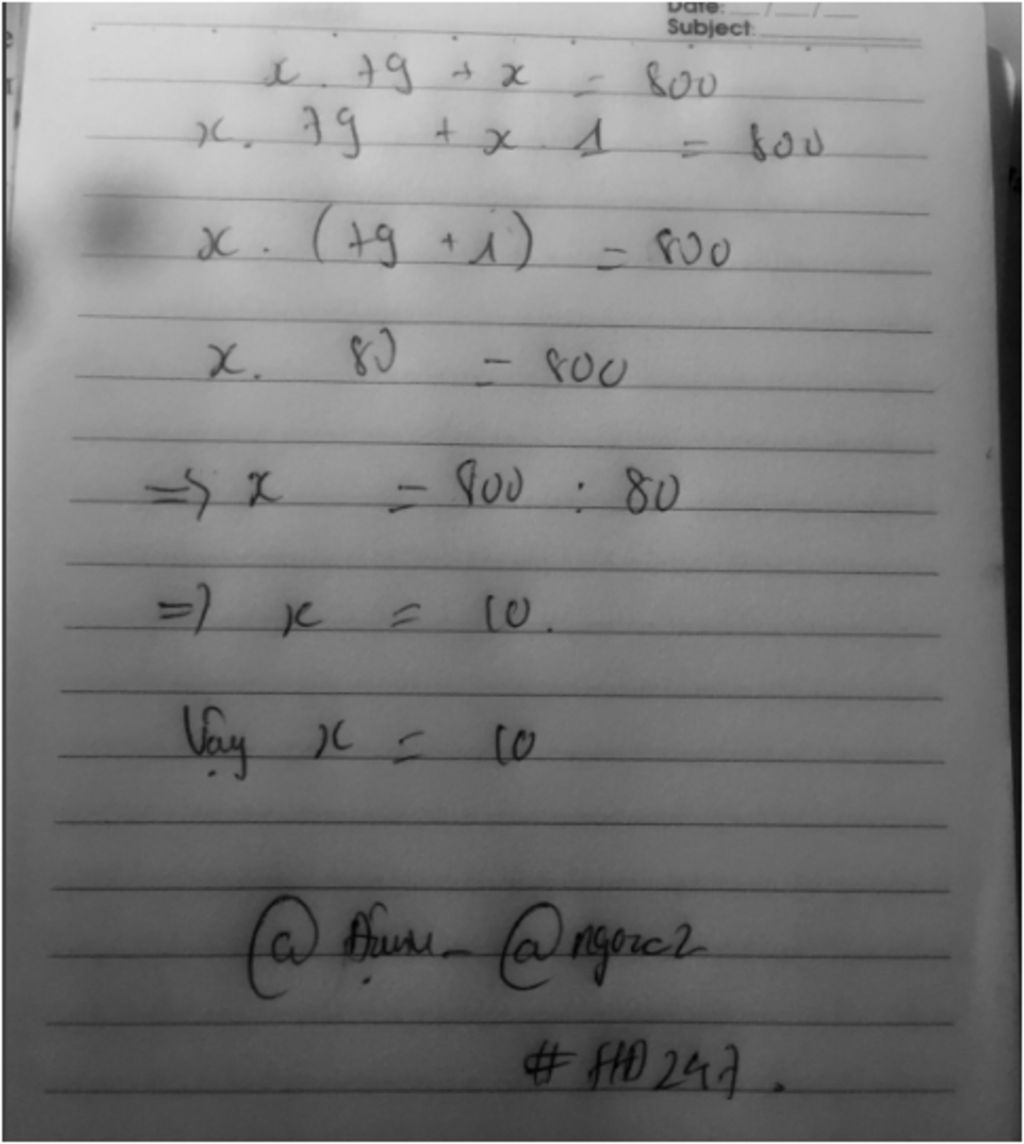 Date: __/__/__
Subject:
x . 79 + x = 800
x . 79 + x . 1 = 800
x . (79 + 1) = 800
x . 80 = 800
=> x = 800 : 80
=> x = 10.
Vậy x = 10
@ @ngozc2
#HD247.